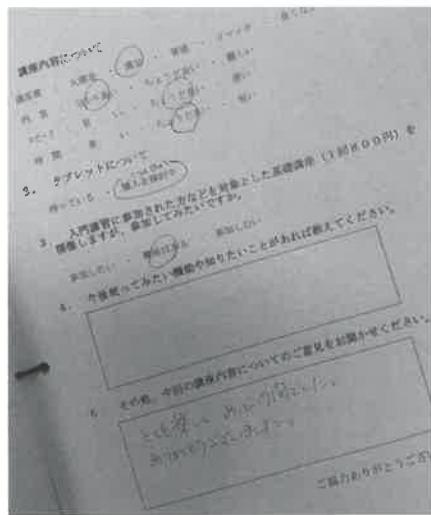 講座内容について
満足度 ・ 大満足 ・ 満足 ・ 普通 ・ イマイチ ・ 良くな
内容 ・ ・ ちょうど良い ・ 難しい
スピード ・ 早い ・ ちょうど良い ・ 遅い
時間 ・ 長い ・ ちょうど良い ・ 短い
2. タブレットについて
持っている ・ 購入を検討中
3. 入門講習に参加された方などを対象とした基礎講座(1回800円)を
開催しますが、参加してみたいですか。
参加したい ・ 興味はある ・ 参加しない
4. 今後使ってみたい機能や知りたいことがあれば教えてください。
5. その他、今回の講座内容についてのご意見をお聞かせください。
とても楽しく
ありがとうございました。
ご協力ありがとうござい